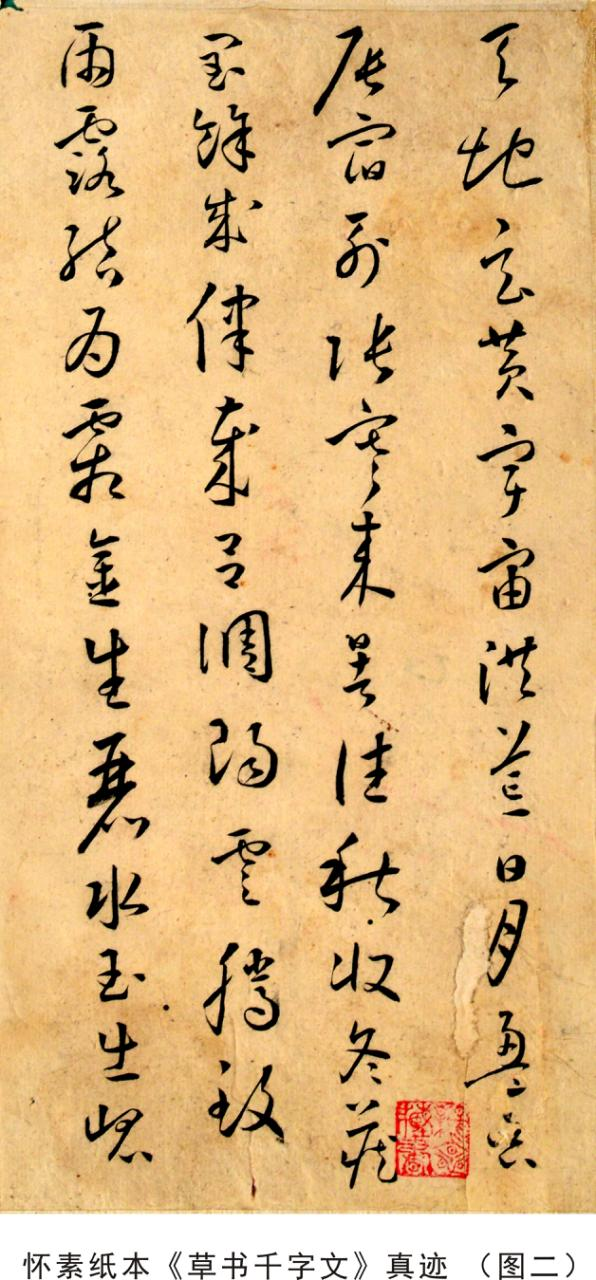 天地玄黄宇宙洪荒日月盈昃
辰宿列張寒来暑往秋收冬藏
閏餘成律歲吕調陽雲騰致
雨露結為霜金生麗水玉出崐
怀素纸本《草书千字文》真迹 （图二）